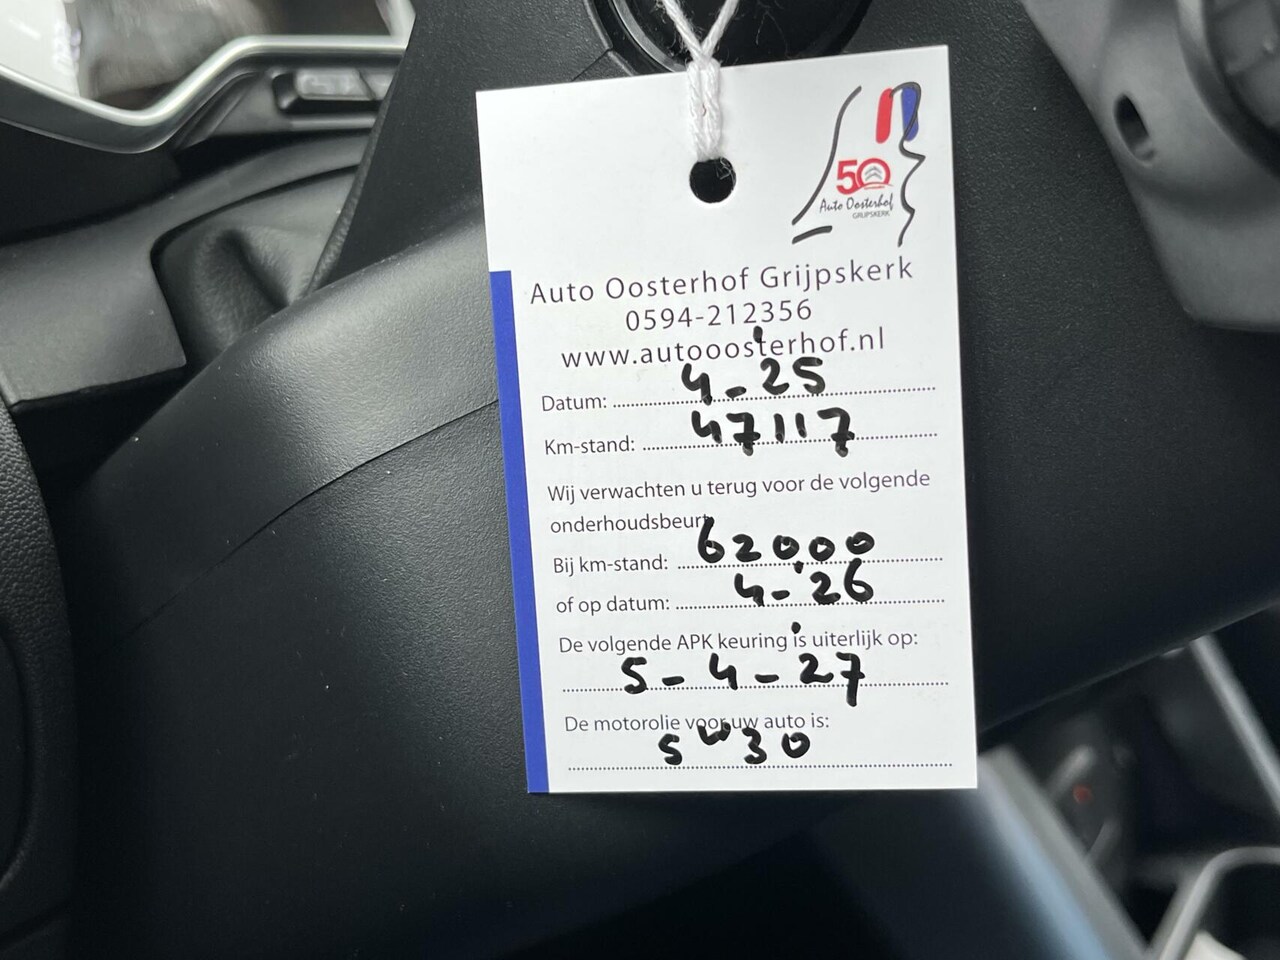 50
Auto Oosterhof
GRIJPSKERK
Auto Oosterhof Grijpskerk
0594-212356
www.autooosterhof.nl
Datum: 4-25
Km-stand: 47117
Wij verwachten u terug voor de volgende
onderhoudsbeurt
Bij km-stand: 62000
of op datum: 4-26
De volgende APK keuring is uiterlijk op:
5-4-27
De motorolie voor uw auto is:
5w30